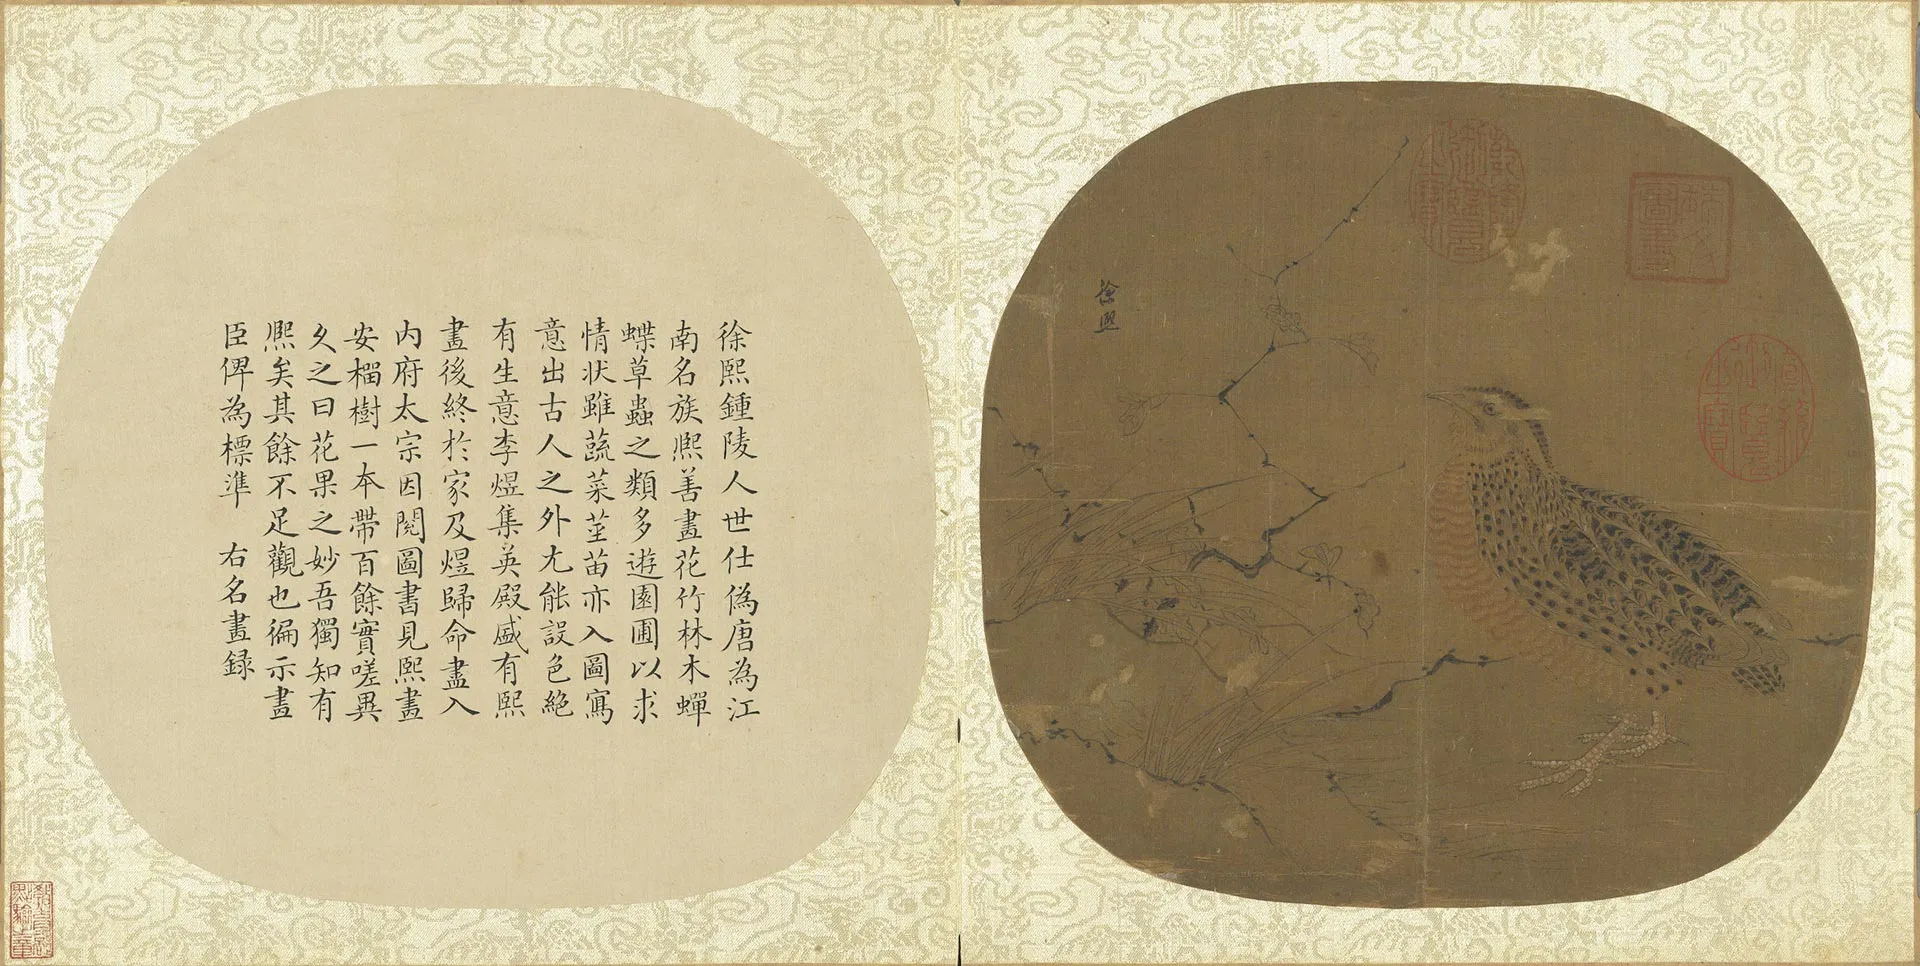 乾隆御覽之寶
徐熙
徐熙鍾陵人世仕偽唐為江
南名族熙善畫花竹林木蟬
蝶草蟲之類多遊園圃以求
情狀雖蔬菜莖苗亦入圖寫
意出古人之外尤能設色絕
有生意李煜集英殿盛有熙
畫後終於家及煜歸命盡入
内府太宗因閱圖書見熙畫
安橊樹一本帶百餘實嗟異
久之曰花果之妙吾獨知有
熙矣其餘不足觀也徧示畫
臣俾為標準 右名畫録